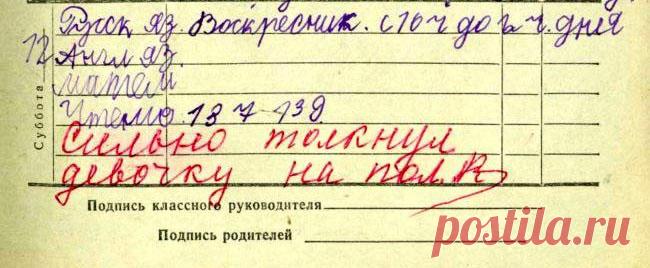 Русск яз. Воскресник. с 10 ч до 2 ч. дня
12 Англ яз.
матем
Чтение. 137-139
Сильно толкнул
девочку на пол.
Суббота
Подпись классного руководителя
Подпись родителей
postila.ru